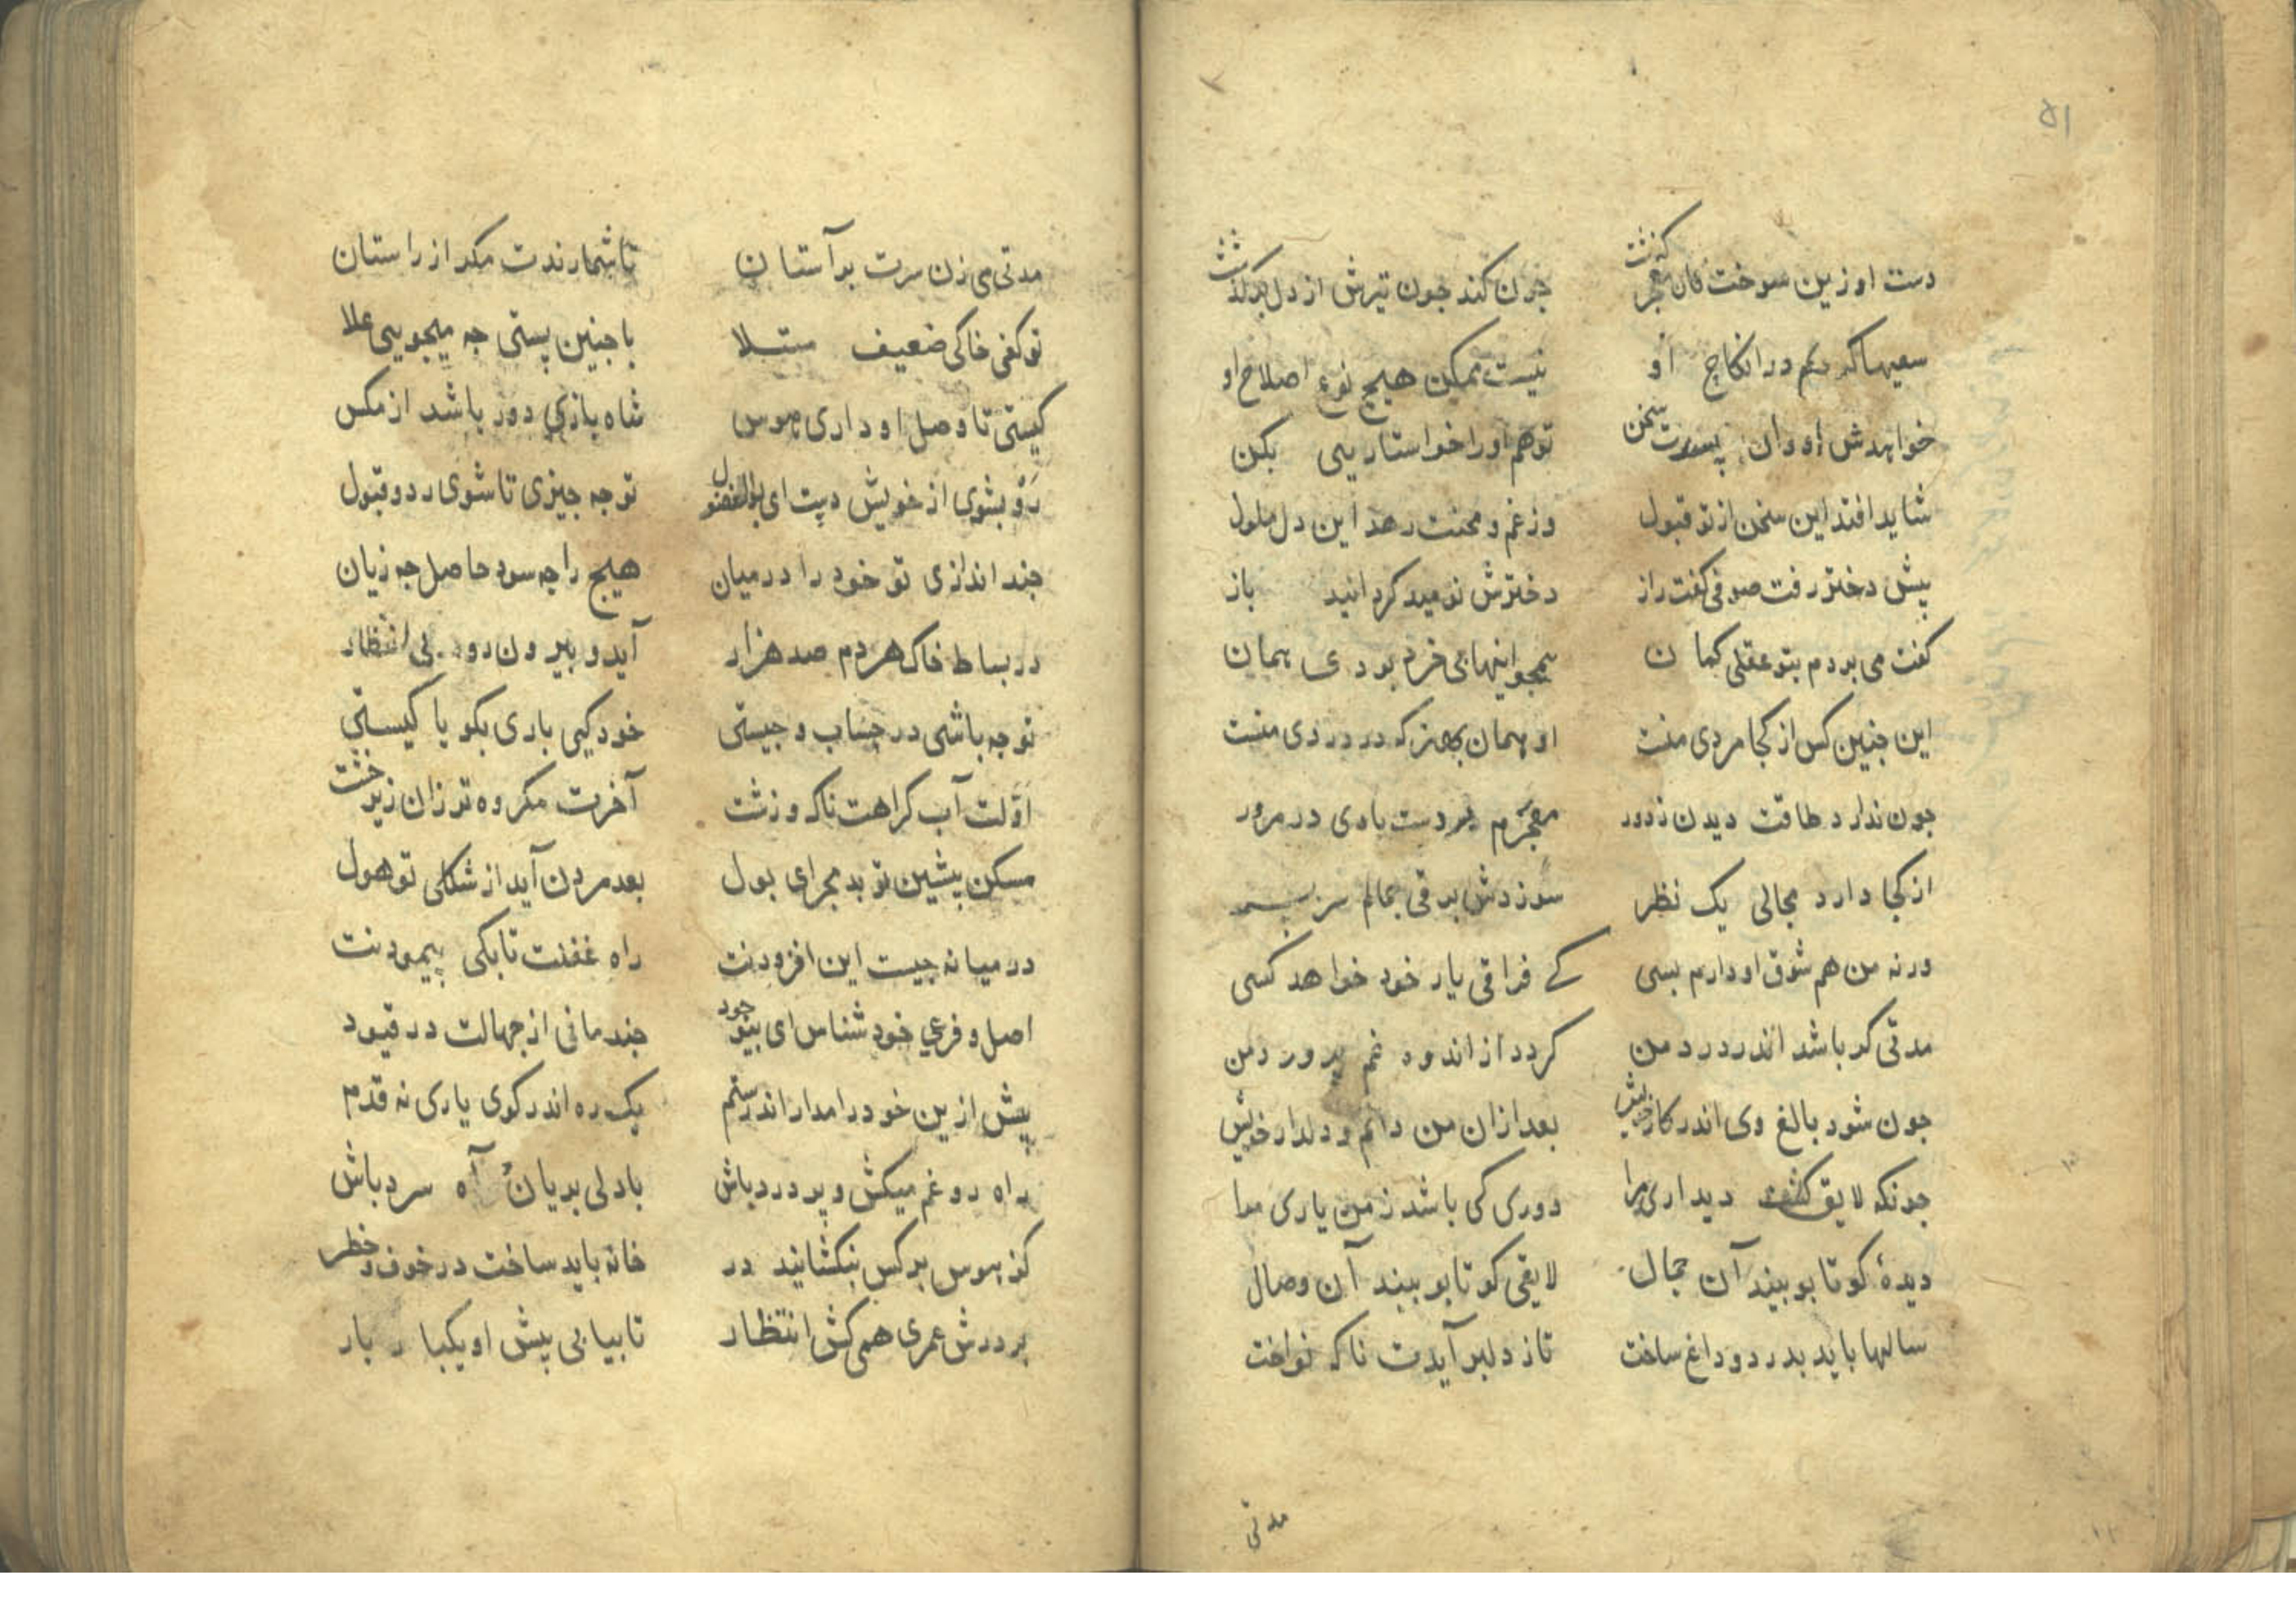 ۵۱
دست او زین سوخت کان معجر گذشت جون کند جون تیرش از دل برگذشت
سعیها کردیم در انکاح او نیست ممکن هیچ نوع اصلاح او
خواهدش او وان پسرت سخن تو هم او را خواستاریی بکن
شاید افتد این سخن از تو قبول وز غم و محنت رهد این دل ملول
پیش دختر رفت صوفی کفت راز دخترش نومید کردانید باز
کفت می بردم بتو عقلی کمان همجو اینها بی خرد بودی همان
این جنین کس از کجا مردی منست او همان بهتر که در دردی منست
جون ندارد طاقت دیدن ز دور معجرم بر دست بادی در مرور
از کجا دارد مجالی یک نظر سوزدش برقی بمالم سر بسر
ورنه من هم شوق او دارم بسی کے فراقی یار خود خواهد کسی
مدتی کر باشد اندر درد من کردد از اندوه غم پرورد من
جون شود بالغ وی اندر کار خویش بعد ازان من دانم و دلدار خویش
جونکه لایق کشت دیداری مرا دوری کی باشد ز من یاری مرا
دیدهٔ کو تا بو بیند آن جمال لایقی کو تا بو بیند آن وصال
سالها باید بدرد و داغ ساخت تاز دلبر آیدت ناکه نواخت
مدتی
مدتی می زن سرت بر آستان تا شمارندت مکر از راستان
تو کفی خاکی ضعیف مبتلا با جنین پستی جه میجویی علا
کیستی تا وصل او داری هوس شاه بازی دور باشد از مکس
رو بشوی از خویش دست ای بوالفضول تو جه جیزی تا شوی رد و قبول
جند اندازی تو خود را در میان هیچ را چه سود حاصل جه زیان
در بساط خاک هر دم صد هزار آید و بیرون رود بی انتظار
تو جه باشی در حساب و جیستی خود کیی باری بکو یا کیستی
اوّلت آب کراهت ناک و زشت آخرت مکروه تر زان زیر خشت
مسکن پیشین تو بد مجرای بول بعد مردن آید از شکلی تو هول
در میانه جیست این افزودنت راه غفلت تا بکی پیمودنت
اصل و فرعی خود شناس ای بیوجود جند مانی از جهالت در قیود
پیش ازین خود را مدار اندر ستم یک ره اندر کوی یاری نه قدم
راه رو غم میکش و پر درد باش با دلی بریان و آه سرد باش
کز هوس بر کس بنکشانید در خانه باید ساخت در خوف و خطر
بر درش عمری همی کش انتظار تا بیابی پیش او یکبار بار